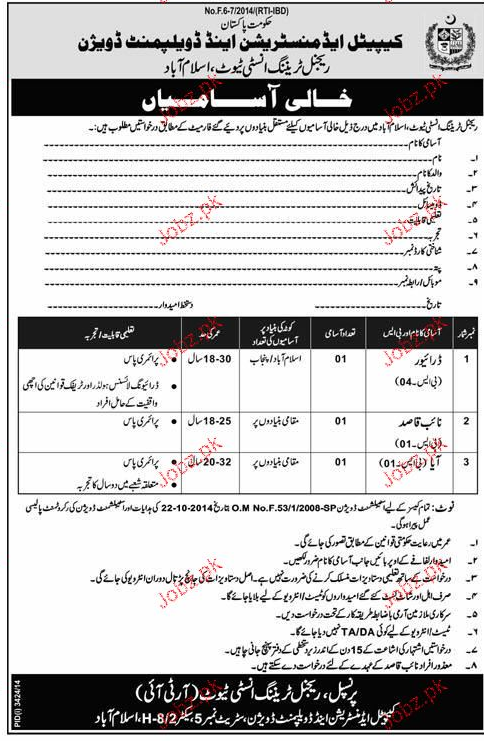 No.F.6-7/2014/(RTI-IBD)
حکومت پاکستان
کیپیٹل ایڈمنسٹریشن اینڈ ڈویلپمنٹ ڈویژن
ریجنل ٹریننگ انسٹی ٹیوٹ، اسلام آباد
خالی آسامیاں
ریجنل ٹریننگ انسٹی ٹیوٹ، اسلام آباد میں درج ذیل خالی آسامیوں کیلئے مستقل بنیادوں پر دیئے گئے فارمیٹ کے مطابق درخواستیں مطلوب ہیں:۔
آسامی کا نام
۱۔ نام
۲۔ والد کا نام
۳۔ تاریخ پیدائش
۴۔ ڈومیسائل
۵۔ تعلیمی قابلیت
۶۔ تجربہ
۷۔ شناختی کارڈ نمبر
۸۔ پتہ
۹۔ موبائل / رابطہ نمبر
تاریخ دستخط امیدوار
نمبر شمار آسامی کا نام اور بی ایس تعداد آسامی کوٹہ کی بنیاد پر آسامیوں کی تعداد عمر کی حد تعلیمی قابلیت / تجربہ
1 ڈرائیور (بی ایس۔04) 01 اسلام آباد / پنجاب 18-30 سال • پرائمری پاس
• ڈرائیونگ لائسنس ہولڈر اور ٹریفک قوانین کی اچھی واقفیت کے حامل افراد
2 نائب قاصد (بی ایس۔01) 01 مقامی بنیادوں پر 18-25 سال • پرائمری پاس
3 آیا (بی ایس۔01) 01 مقامی بنیادوں پر 20-32 سال • پرائمری پاس
• متعلقہ شعبے میں دو سال کا تجربہ
نوٹ: تمام کیسز کے لیے اسٹیبلشمنٹ ڈویژن O.M No.F.53/1/2008-SP بتاریخ 22-10-2014 کی ہدایات اور اسٹیبلشمنٹ ڈویژن کی رکروٹمنٹ پالیسی
عمل پیرا ہوگی۔
۱۔ عمر میں رعایت حکومتی قوانین کے مطابق تصور کی جائے گی۔
۲۔ امیدوار لفافے کے اوپر بائیں جانب آسامی کا نام ضرور لکھیں۔
۳۔ درخواست کے ساتھ تعلیمی دستاویزات منسلک کرنے کی ضرورت نہیں ہے۔ اصل دستاویزات کی جانچ پڑتال دوران انٹرویو کی جائے گی۔
۴۔ صرف اہل اور شارٹ لسٹ کئے گئے امیدواروں کو ٹیسٹ / انٹرویو کے لیے بلایا جائے گا۔
۵۔ سرکاری ملازمین آرمی باضابطہ طریقہ کار کے تحت درخواست دیں۔
۶۔ ٹیسٹ / انٹرویو کے لیے کوئی TA/DA نہیں دیا جائے گا۔
۷۔ درخواستیں اشتہار کی اشاعت کے 15 دن کے اندر زیر دستخطی کے دفتر پہنچ جانی چاہئیں۔
۸۔ معذور افراد نائب قاصد کے عہدے کے لئے درخواست دے سکتے ہیں۔
پرنسپل، ریجنل ٹریننگ انسٹی ٹیوٹ (آر ٹی آئی)
کیپیٹل ایڈمنسٹریشن اینڈ ڈویلپمنٹ ڈویژن، سٹریٹ نمبر 5، سیکٹر H-8/2، اسلام آباد
PID(i) 3424/14
Jobz.pk